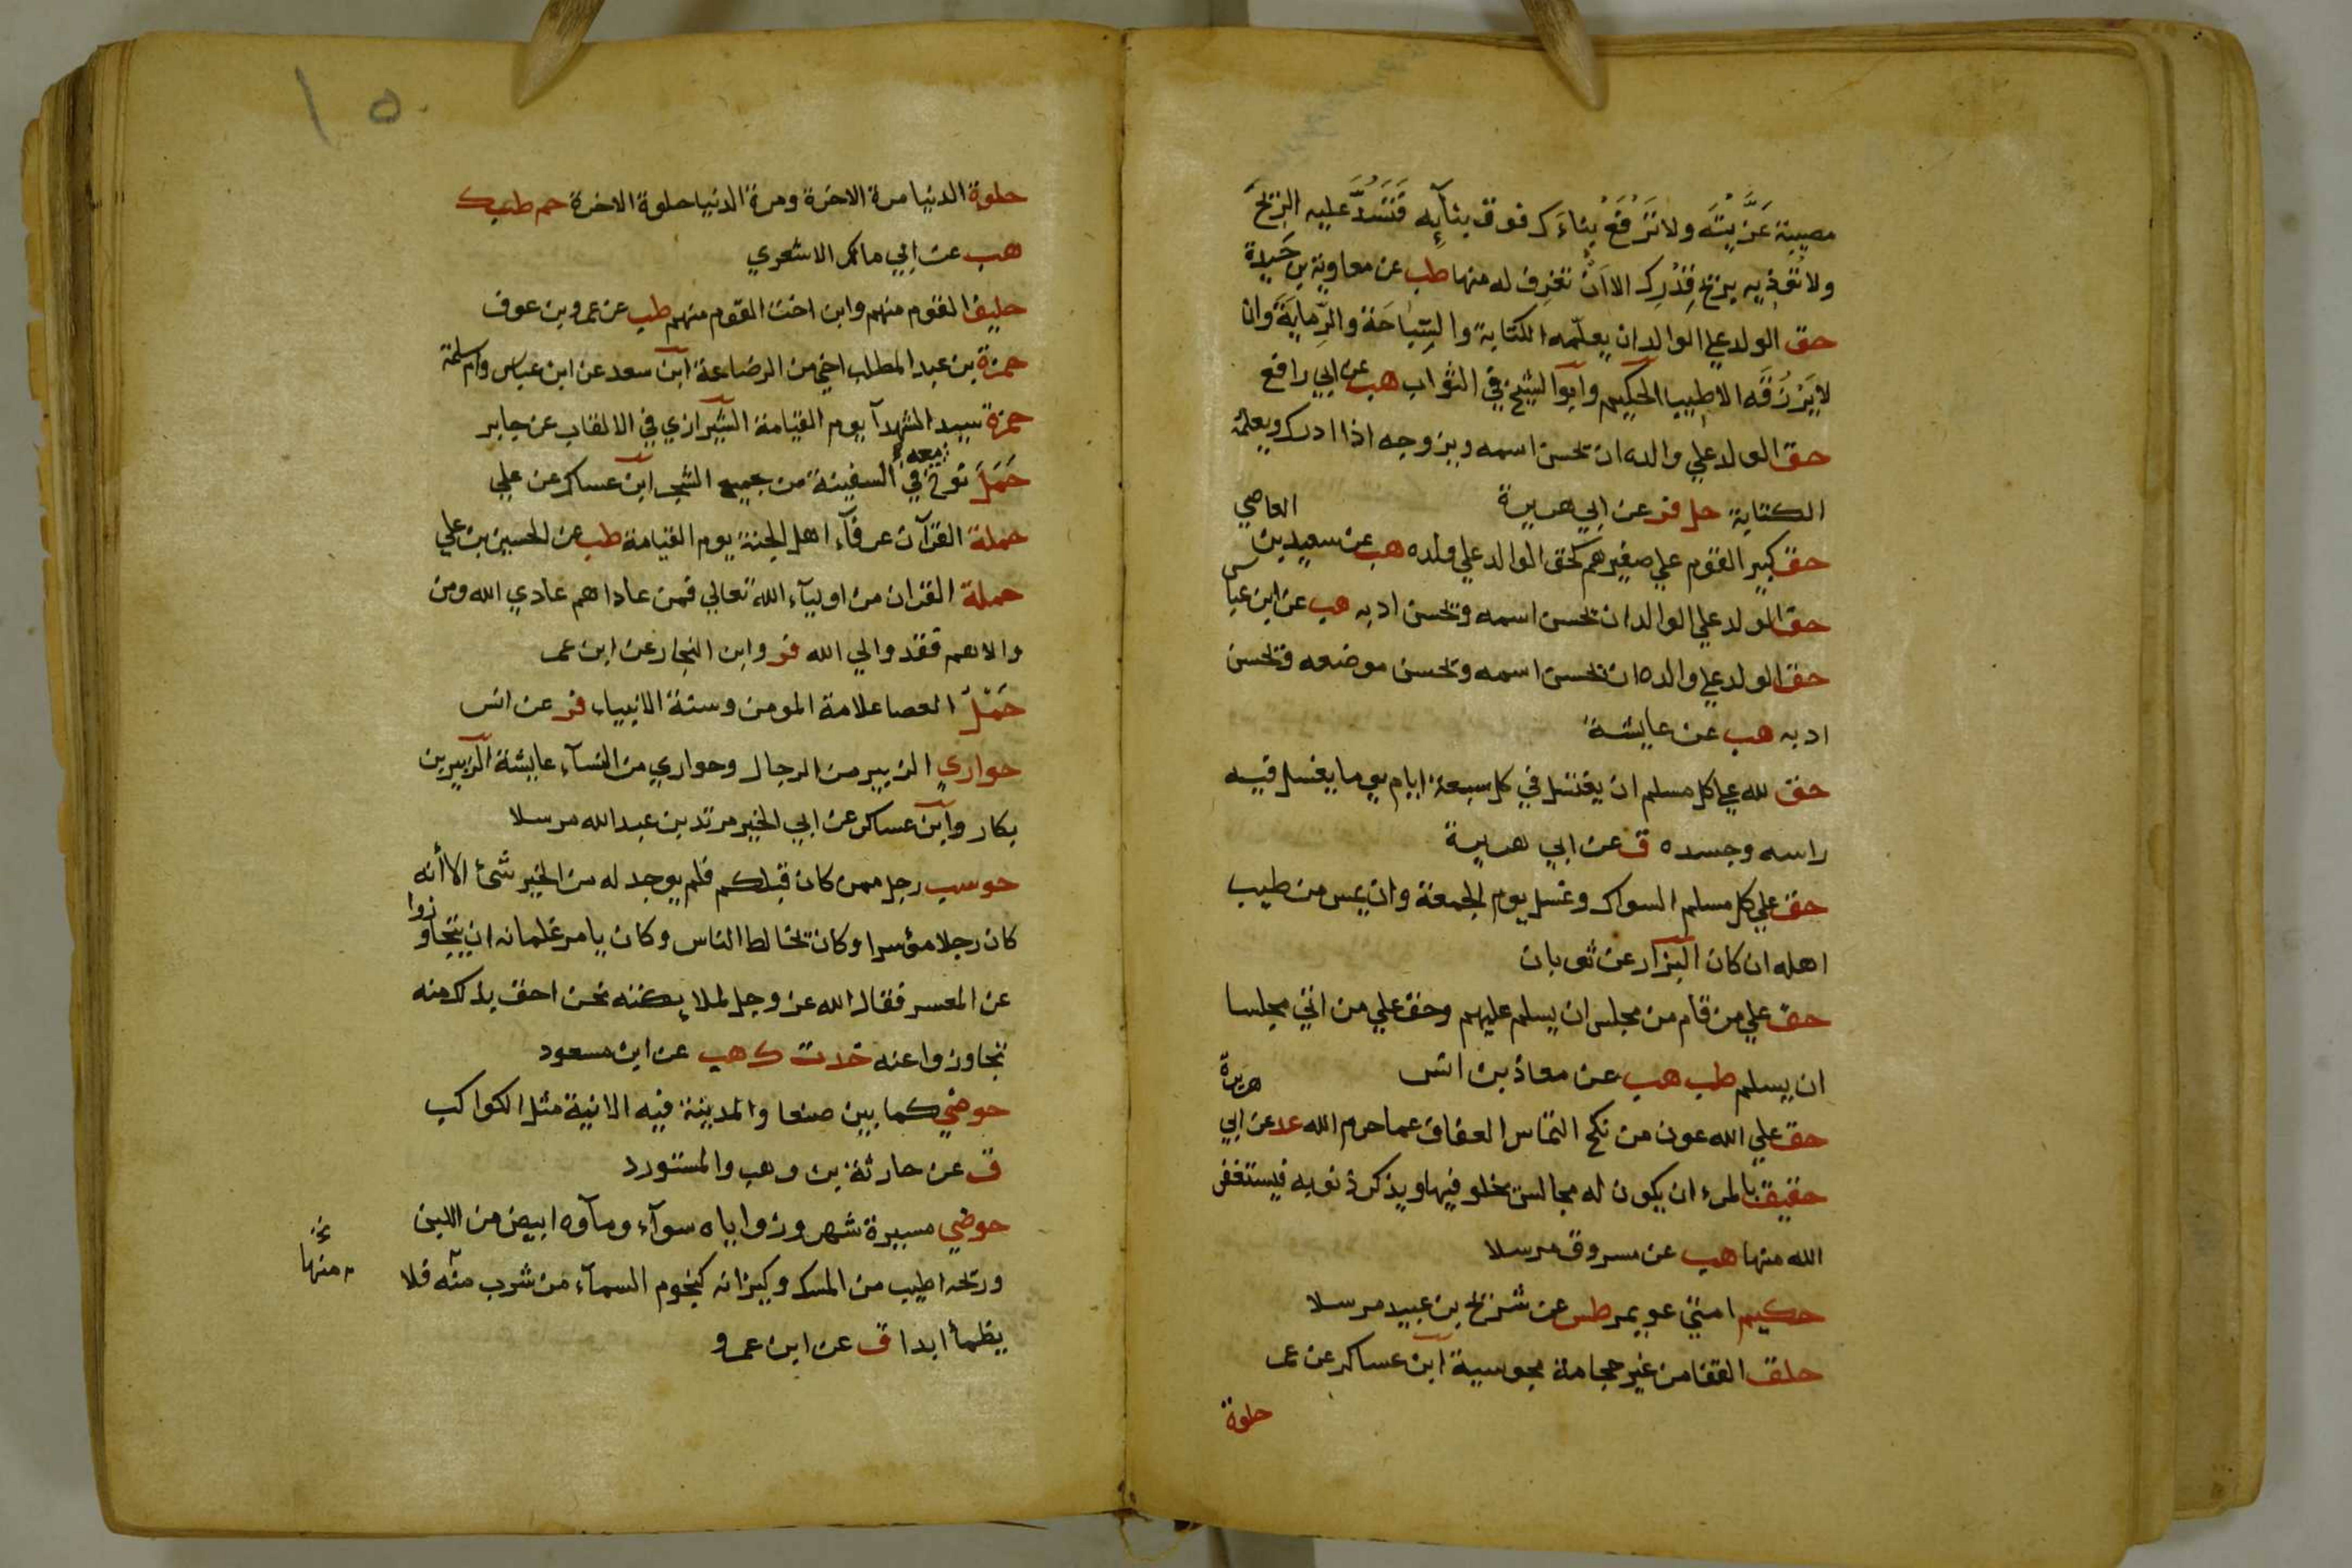 مصيبة عَزَّيْتَه ولا تَرْفَعْ بِنَاءَك فوق بنآيِه فَتَسُدَّ عليه الريحَ
ولا تُؤذيه بريح قِدْرِك الا اَنْ تَغرِف له منها طب عن معاوية بن حَيدة
حق الولد علي الوالد ان يعلّمه الكتابة والسِّبَاحَة والرِّمايَةَ وان
لا يَرْزُقَه الا طيبا الحكيم وابو الشيخ في الثواب هب عن ابي رافع
حق الولد علي والده ان يحسن اسمه ويزوجه اذا ادرك ويعلمه
الكتابة حل فر عن ابي هريرة
حق كبير القوم علي صغيرهم كحق الوالد علي ولده هب عن سعيد بن العاصي
حق الولد علي الوالد ان يحسن اسمه ويحسن ادبه هب عن ابن عباس
حق الولد علي والده ان يحسن اسمه ويحسن موضعه ويحسن
ادبه هب عن عايشة
حق لله علي كل مسلم ان يغتسل في كل سبعة ايام يوما يغسل فيه
راسه وجسده ق عن ابي هريرة
حق علي كل مسلم السواك وغسل يوم الجمعة وان يمس من طيب
اهله ان كان البزار عن ثوبان
حق علي من قام من مجلس ان يسلم عليهم وحق علي من اتي مجلسا
ان يسلم طب هب عن معاذ بن انس
حق علي الله عون من نكح التماس العفاف عما حرم الله عد عن ابي هريرة
حقيق بالمرء ان يكون له مجالس يخلو فيها ويذكر ذنوبه فيستغفر
الله منها هب عن مسروق مرسلا
حكيم امتي عويمر طس عن شريح بن عبيد مرسلا
حلق القفا من غير حجامة مجوسية ابن عساكر عن عمر
حلوة
١٥
حلوة الدنيا مرة الاخرة ومرة الدنيا حلوة الاخرة حم طب ك
هب عن ابي مالك الاشعري
حليف القوم منهم وابن اخت القوم منهم طب عن عمرو بن عوف
حمزة بن عبد المطلب اخي من الرضاعة ابن سعد عن ابن عباس وام سلمة
حمزة سيد الشهدآ يوم القيامة الشيرازي في الالقاب عن جابر
حَمَلَ نوح معه في السفينة من جميع الشجر ابن عساكر عن علي
حملة القرآن عرفآء اهل الجنة يوم القيامة طب عن الحسين بن علي
حملة القران من اوليآء الله تعالي فمن عاداهم عادي الله ومن
والاهم فقد والي الله فر وابن النجار عن ابن عمر
حَمْلُ العصا علامة المومن وسنة الانبياء فر عن انس
حواري الزبير من الرجال وحواري من النسآء عايشة الزبير بن
بكار وابن عساكر عن ابي الخير مرثد بن عبد الله مرسلا
حوسب رجل ممن كان قبلكم فلم يوجد له من الخير شئ الا أنه
كان رجلا مؤسرا وكان يخالط الناس وكان يامر غلمانه ان يتجاوزوا
عن المعسر فقال الله عز وجل لملايكته نحن احق بذلك منه
تجاوزوا عنه خد ت ك هب عن ابن مسعود
حوضي كما بين صنعا والمدينة فيه الانية مثل الكواكب
ق عن حارثة بن وهب والمستورد
حوضي مسيرة شهر وزواياه سوآء ومآوه ابيض من اللبن
وريحه اطيب من المسك وكيزانه كنجوم السمآء من شرب منه فلا
منها
يظمأ ابدا ق عن ابن عمرو